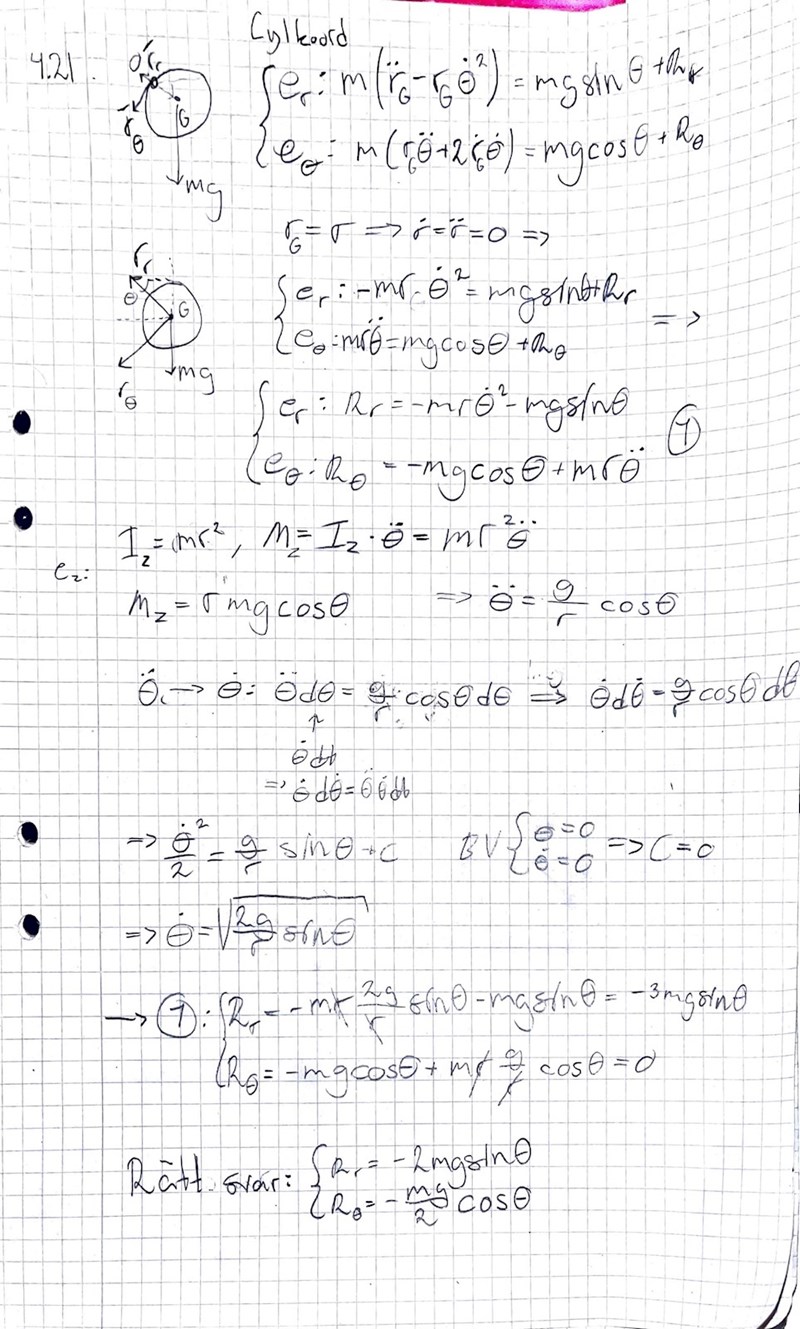 Cylkoord
4.21.
e_r : m(r̈_G - r_G θ̇²) = mg sinθ + R_r
e_θ : m(r_G θ̈ + 2ṙ_G θ̇) = mg cosθ + R_θ
O' r_r
G
r_θ
mg
r_G = r => ṙ = r̈ = 0 =>
r_r
θ G
mg
r_θ
e_r : -mr · θ̇² = mg sinθ + R_r
e_θ : mrθ̈ = mg cosθ + R_θ =>
e_r : R_r = -mrθ̇² - mg sinθ
e_θ : R_θ = -mg cosθ + mrθ̈ ①
I_z = mr², M_z = I_z · θ̈ = mr²θ̈
e_z:
M_z = r mg cosθ => θ̈ = g/r cosθ
θ̈ → θ̇ : θ̈dθ = g/r cosθdθ => θ̇dθ̇ = g/r cosθdθ
↑
θ̇dt
=> θ̇dθ̇ = θ̈θ̇dt
=> θ̇²/2 = g/r sinθ + C BV { θ = 0 θ̇ = 0 => C = 0
=> θ̇ = √(2g/r sinθ)
→ ① : R_r = -mr 2g/r sinθ - mg sinθ = -3mg sinθ
R_θ = -mg cosθ + mr g/r cosθ = 0
Rätt svar: { R_r = -2mg sinθ
R_θ = -mg/2 cosθ